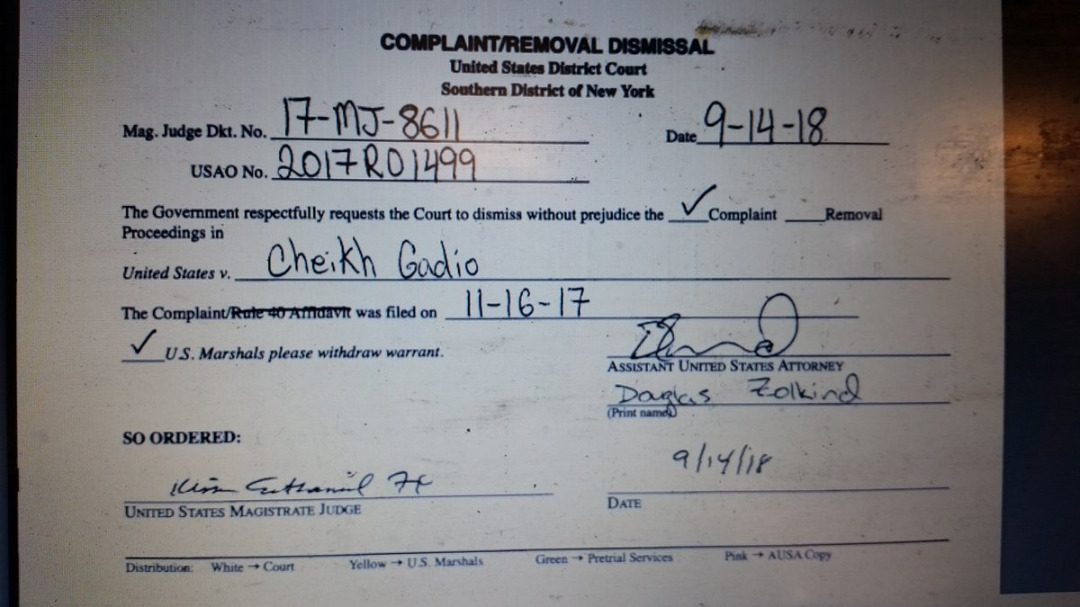 COMPLAINT/REMOVAL DISMISSAL
United States District Court
Southern District of New York
Mag. Judge Dkt. No. 17-MJ-8611 Date 9-14-18
USAO No. 2017R01499
The Government respectfully requests the Court to dismiss without prejudice the ✓ Complaint ____ Removal
Proceedings in
United States v. Cheikh Gadio
The Complaint/Rule 40 Affidavit was filed on 11-16-17
✓ U.S. Marshals please withdraw warrant.
ASSISTANT UNITED STATES ATTORNEY
Douglas Zolkind
(Print name)
SO ORDERED:
9/14/18
UNITED STATES MAGISTRATE JUDGE DATE
Distribution: White → Court Yellow → U.S. Marshals Green → Pretrial Services Pink → AUSA Copy